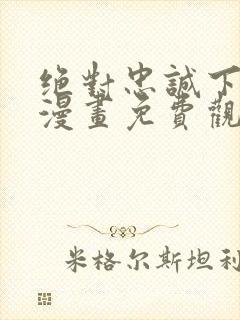 绝對忠誠下
漫畫免費觀
米格尔斯坦利